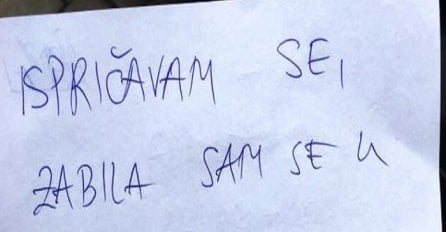 ISPRIČAVAM SE,
ZABILA SAM SE U